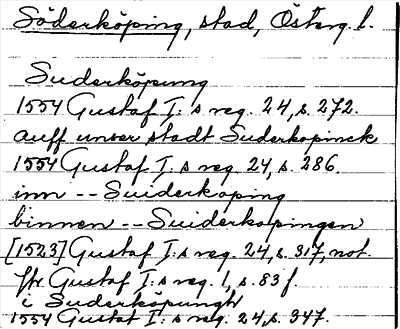 Söderköping, stad, Österg. l.
Suderköpung
1554 Gustaf I:s reg. 24, s. 272.
auff unser stadt Suderkopinck
1554 Gustaf I:s reg. 24, s. 286.
inn -- Suiderkoping
binnen -- Suiderkopingen
[1523] Gustaf I:s reg. 24, s. 317, not.
ftr. Gustaf I:s reg. 1, s. 83 f.
i Suderköpungh
1554 Gustaf I:s reg. 24, s. 347.